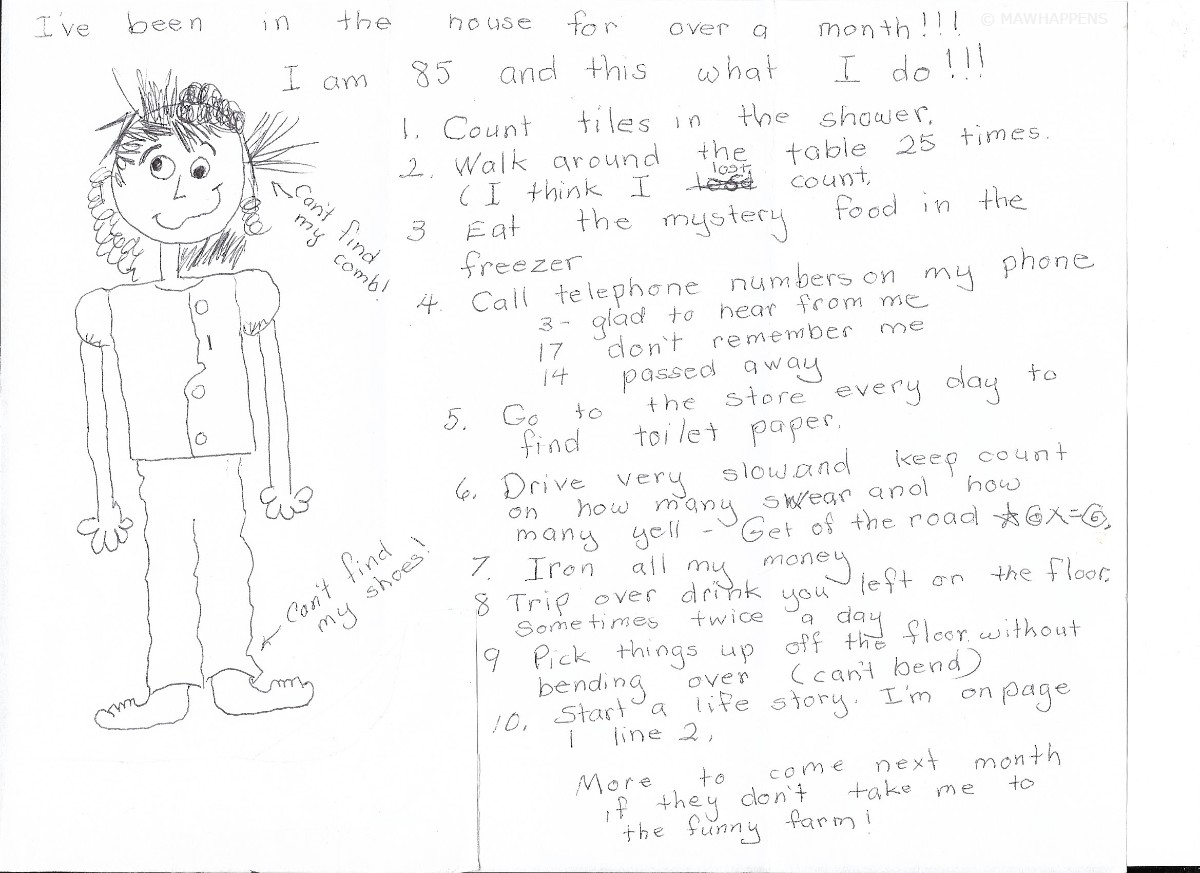 © MAWHAPPENS
I've been in the house for over a month!!!
I am 85 and this what I do!!!
Can't find
my
comb!
1. Count tiles in the shower.
2. Walk around the table 25 times.
(I think I lost count.
3 Eat the mystery food in the
freezer
4. Call telephone numbers on my phone
3 - glad to hear from me
17 don't remember me
14 passed away
5. Go to the store every day to
find toilet paper.
6. Drive very slow and keep count
on how many swear and how
many yell - Get of the road
7. Iron all my money
8 Trip over drink you left on the floor.
Sometimes twice a day
9 Pick things up off the floor without
bending over (can't bend)
10. Start a life story. I'm on page
1 line 2.
More to come next month
if they don't take me to
the funny farm!
Can't find
my shoes!